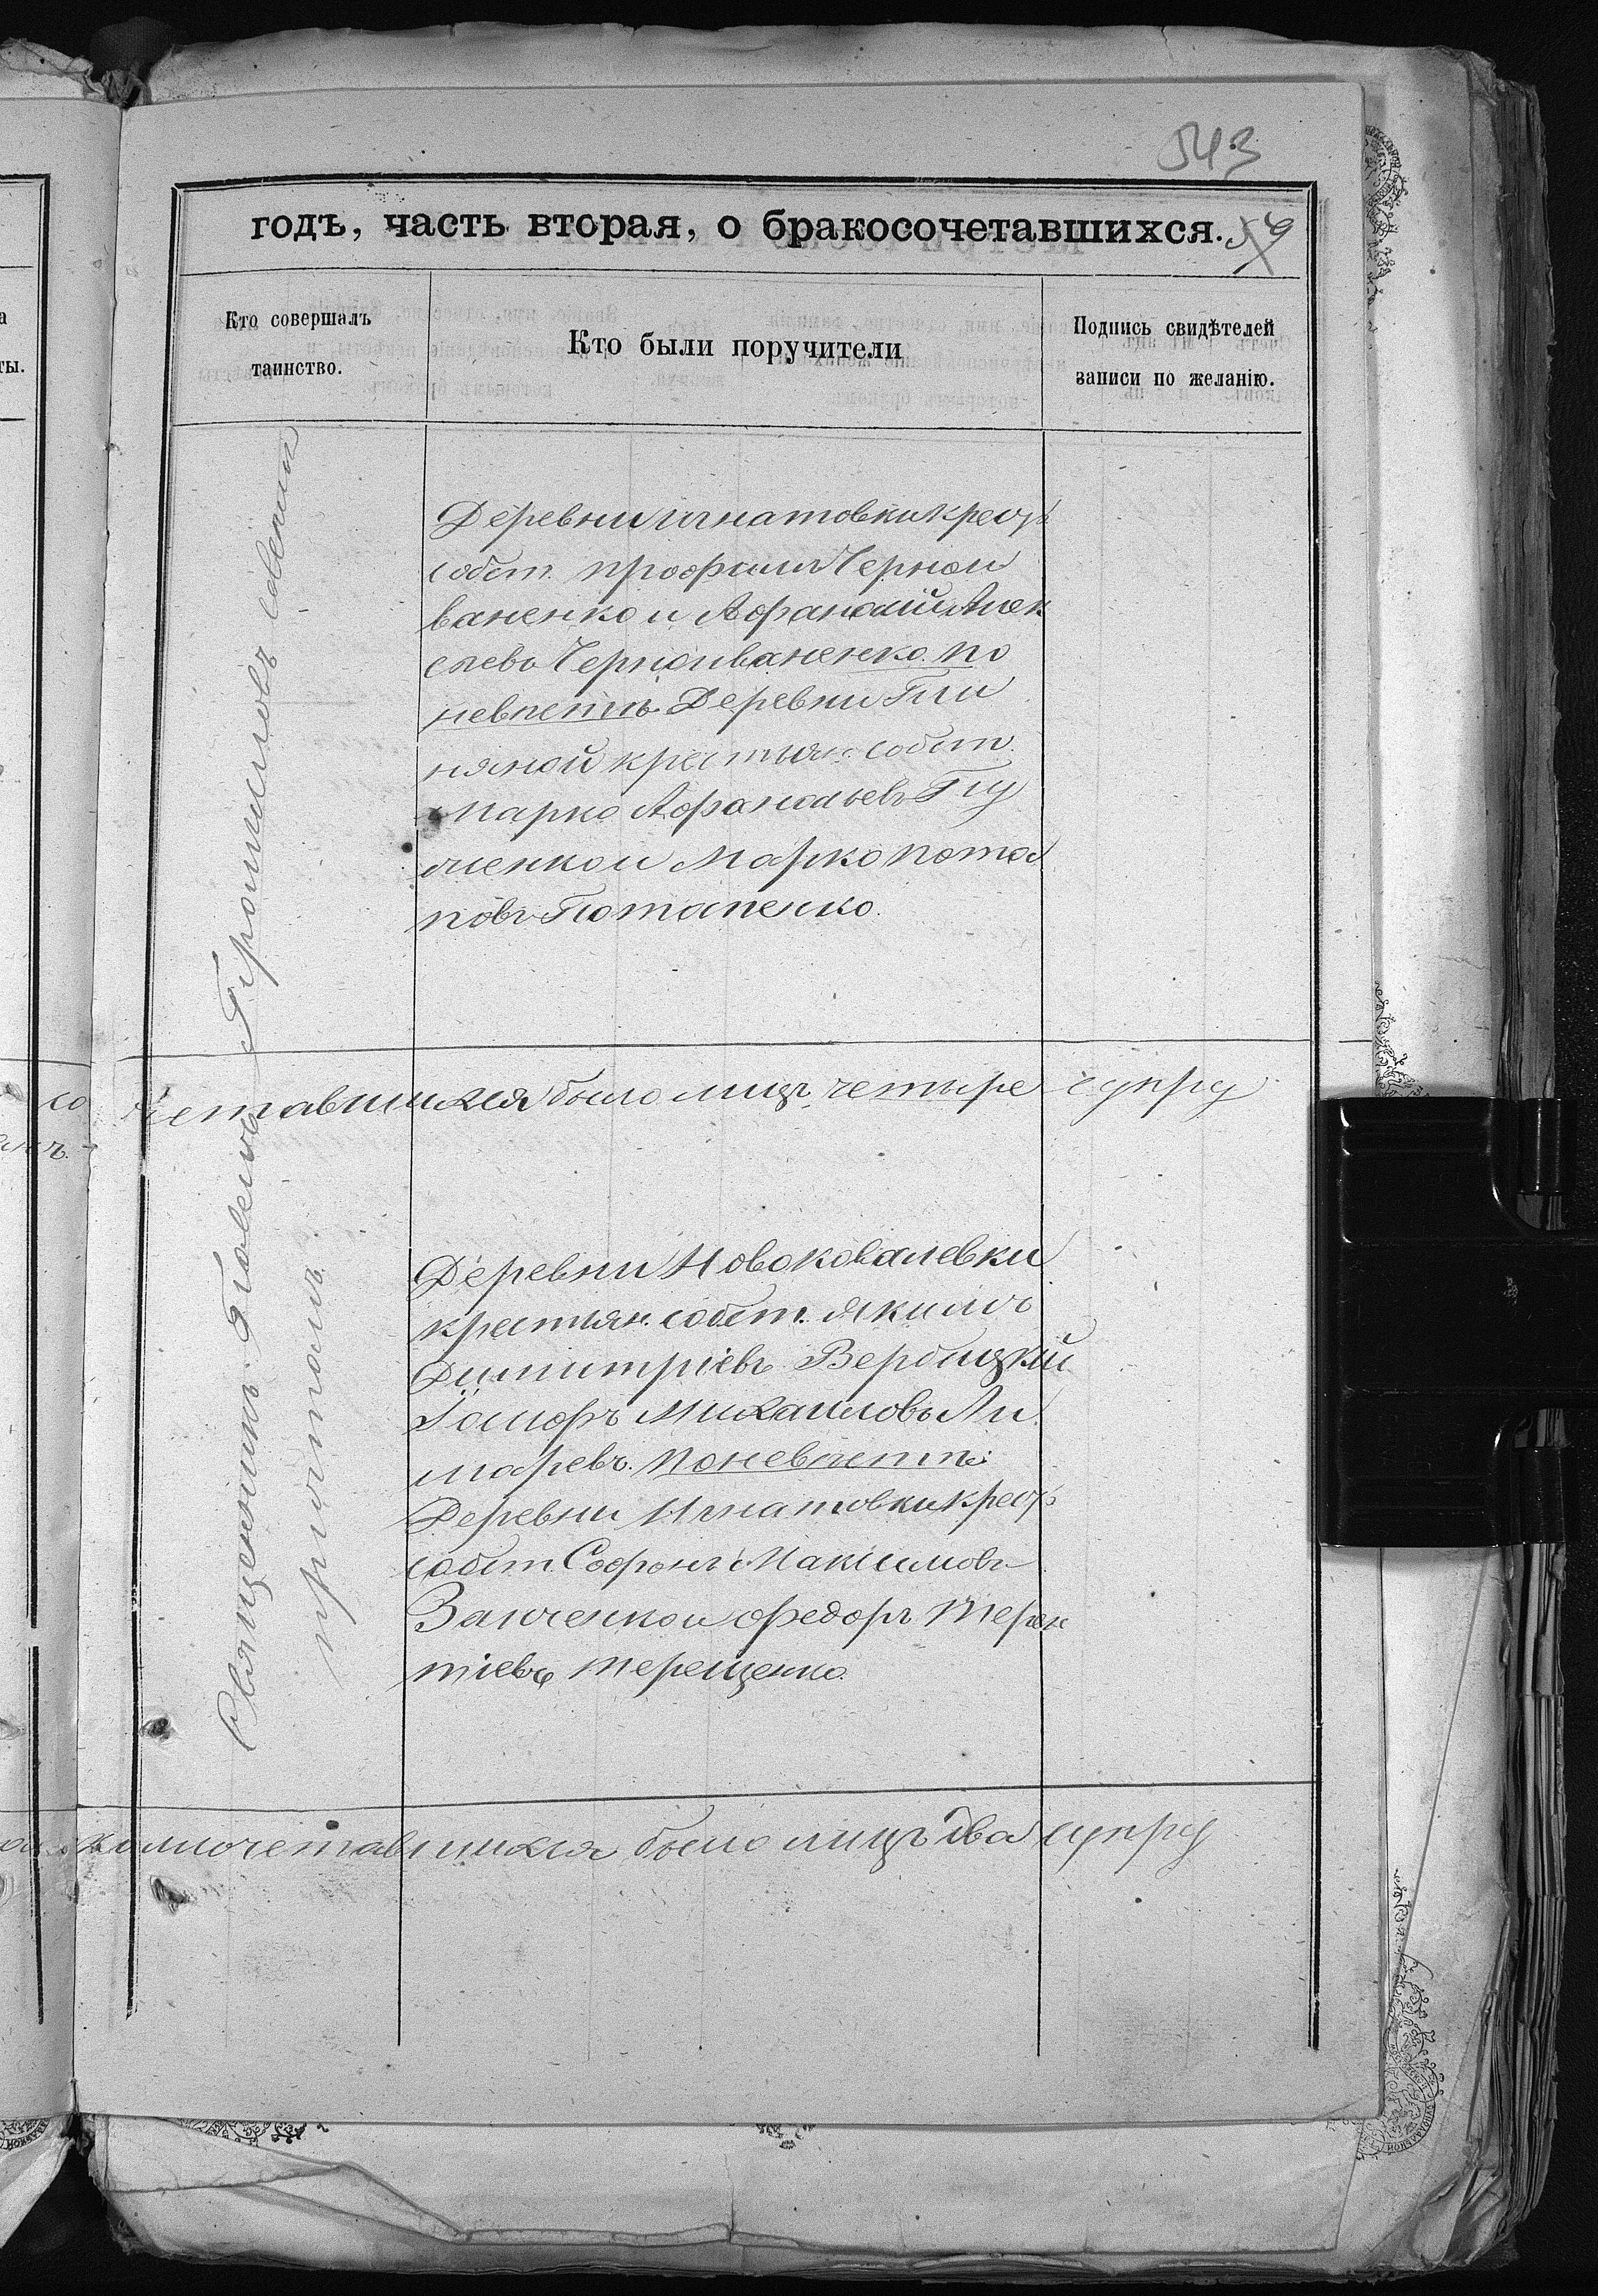 543
годъ, часть вторая, о бракосочетавшихся. 59
Кто совершалъ
таинство.
Кто были поручители
Подпись свидѣтелей
записи по желанію.
Священникъ Павелъ Герасимовъ совмѣ
причтомъ
Деревни Игнатовки крест
собст. Трофимъ Черно
ваненко и Афанасій Алек
сѣевъ Черноиваненко. по
невѣстѣ Деревни Гли
няной крестьян. собст.
Марко Афанасьевъ Глу
щенко и Марко Пота
повъ Потапенко.
четавшихся было лицъ четыре супру
Деревни Новоковалевки
крестьян. собст. Якимъ
Димитріевъ Вербицкій
Михаиловъ Ли
маревъ. по невѣстѣ:
Деревни Игнатовки крест
собст. Софронъ Максимовъ
Заиченко и Федоръ Терен
тіевъ Терещенко.
комочетавшихся было лицъ два супру